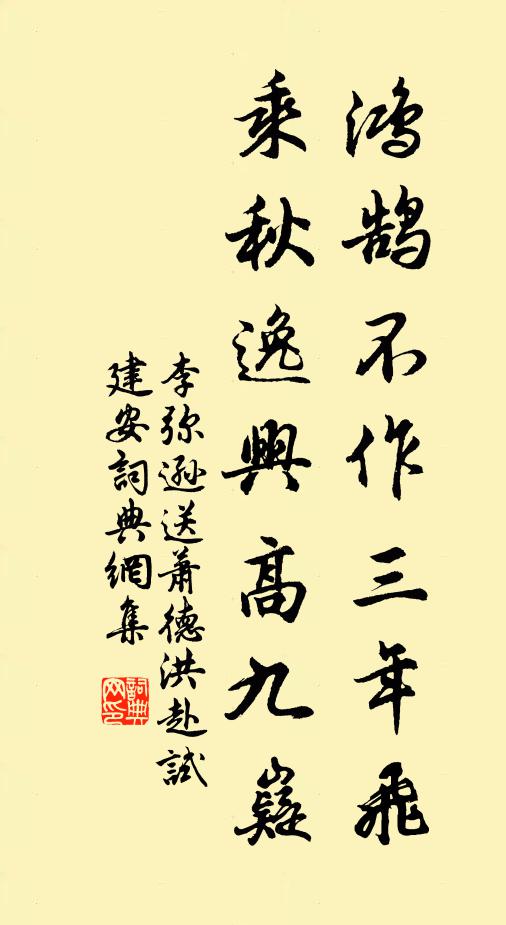 鴻鵠不作三年飛
乘秋逸興高九嶷
李弥遜送蕭德洪赴試
建安詞典網集
詞典
网印